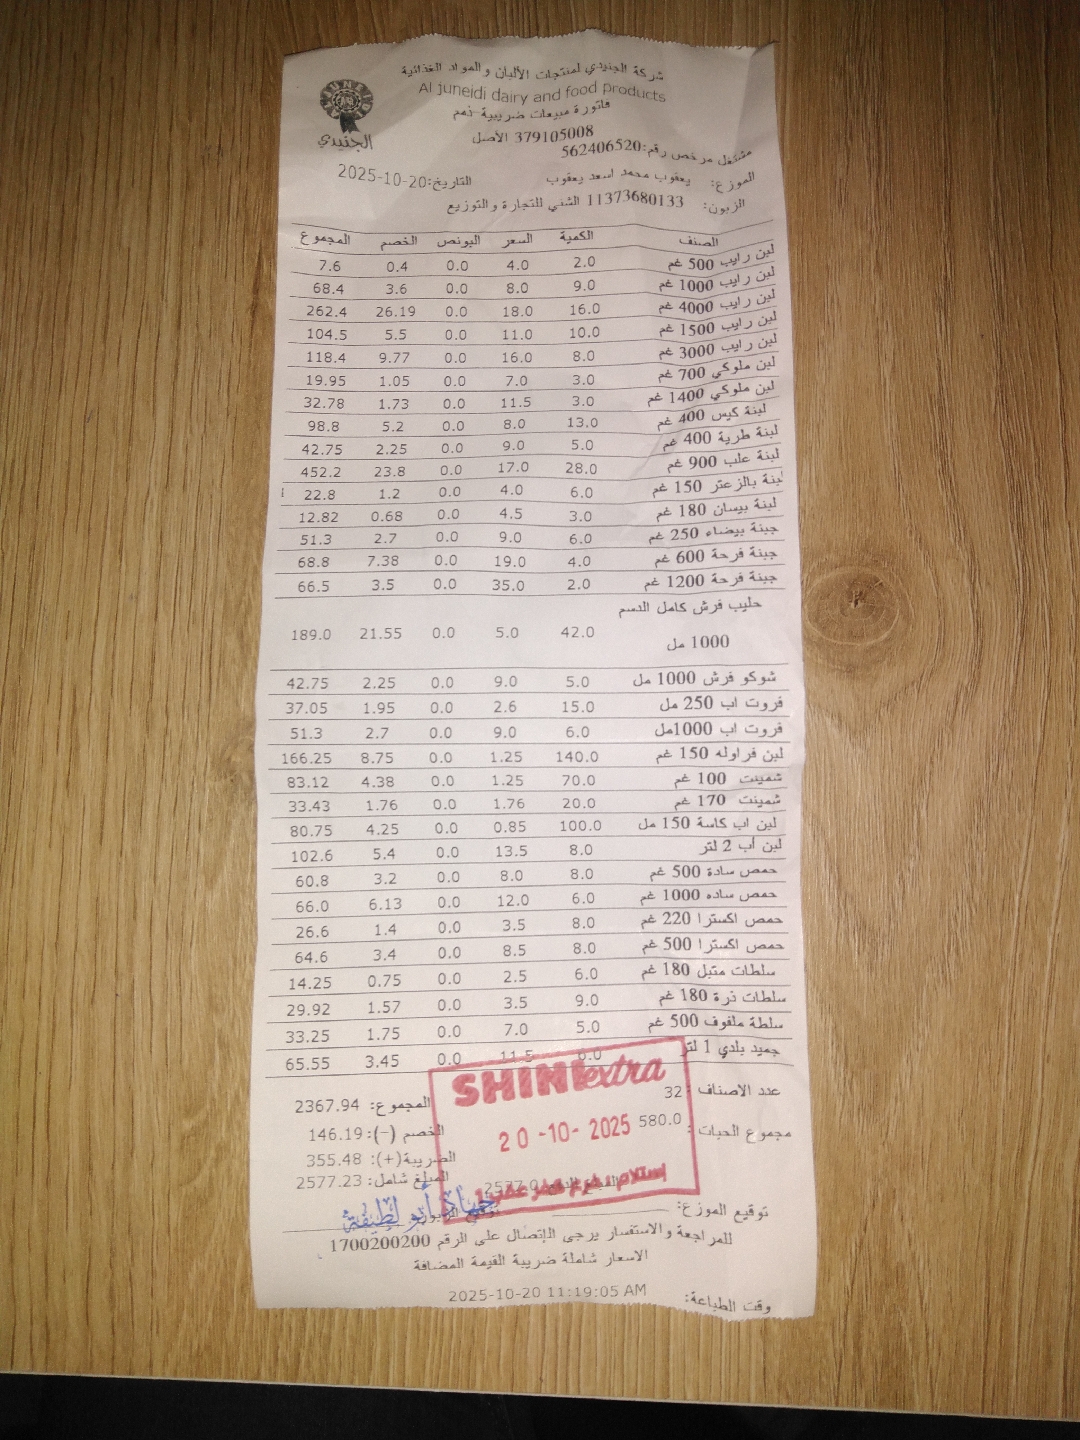 شركة الجنيدي لمنتجات الألبان والمواد الغذائية
Al juneidi dairy and food products
فاتورة مبيعات ضريبية-ذمم
الجنيدي
379105008 الأصل
مشتغل مرخص رقم:562406520
الموزع: يعقوب محمد اسعد يعقوب التاريخ:20-10-2025
الزبون: 11373680133 الشني للتجارة والتوزيع
الصنف الكمية السعر البونص الخصم المجموع
لبن رايب 500 غم 2.0 4.0 0.0 0.4 7.6
لبن رايب 1000 غم 9.0 8.0 0.0 3.6 68.4
لبن رايب 4000 غم 16.0 18.0 0.0 26.19 262.4
لبن رايب 1500 غم 10.0 11.0 0.0 5.5 104.5
لبن رايب 3000 غم 8.0 16.0 0.0 9.77 118.4
لبن ملوكي 700 غم 3.0 7.0 0.0 1.05 19.95
لبن ملوكي 1400 غم 3.0 11.5 0.0 1.73 32.78
لبنة كيس 400 غم 13.0 8.0 0.0 5.2 98.8
لبنة طرية 400 غم 5.0 9.0 0.0 2.25 42.75
لبنة علب 900 غم 28.0 17.0 0.0 23.8 452.2
لبنة بالزعتر 150 غم 6.0 4.0 0.0 1.2 22.8
لبنة بيسان 180 غم 3.0 4.5 0.0 0.68 12.82
جبنة بيضاء 250 غم 6.0 9.0 0.0 2.7 51.3
جبنة فرحة 600 غم 4.0 19.0 0.0 7.38 68.8
جبنة فرحة 1200 غم 2.0 35.0 0.0 3.5 66.5
حليب فرش كامل الدسم
1000 مل 42.0 5.0 0.0 21.55 189.0
شوكو فرش 1000 مل 5.0 9.0 0.0 2.25 42.75
فروت اب 250 مل 15.0 2.6 0.0 1.95 37.05
فروت اب 1000مل 6.0 9.0 0.0 2.7 51.3
لبن فراوله 150 غم 140.0 1.25 0.0 8.75 166.25
شمينت 100 غم 70.0 1.25 0.0 4.38 83.12
شمينت 170 غم 20.0 1.76 0.0 1.76 33.43
لبن اب كاسة 150 مل 100.0 0.85 0.0 4.25 80.75
لبن أب 2 لتر 8.0 13.5 0.0 5.4 102.6
حمص سادة 500 غم 8.0 8.0 0.0 3.2 60.8
حمص ساده 1000 غم 6.0 12.0 0.0 6.13 66.0
حمص اكسترا 220 غم 8.0 3.5 0.0 1.4 26.6
حمص اكسترا 500 غم 8.0 8.5 0.0 3.4 64.6
سلطات متبل 180 غم 6.0 2.5 0.0 0.75 14.25
سلطات ذرة 180 غم 9.0 3.5 0.0 1.57 29.92
سلطة ملفوف 500 غم 5.0 7.0 0.0 1.75 33.25
جميد بلدي 1 لتر 6.0 11.5 0.0 3.45 65.55
SHINI extra
20-10-2025
عدد الاصناف: 32 المجموع: 2367.94
مجموع الحبات: 580.0 الخصم (-): 146.19
الضريبة(+): 355.48
المبلغ شامل: 2577.23
جهاد أبو لطيفة
توقيع الموزع:
للمراجعة والاستفسار يرجى الإتصال على الرقم 1700200200
الاسعار شاملة ضريبة القيمة المضافة
وقت الطباعة: 2025-10-20 11:19:05 AM